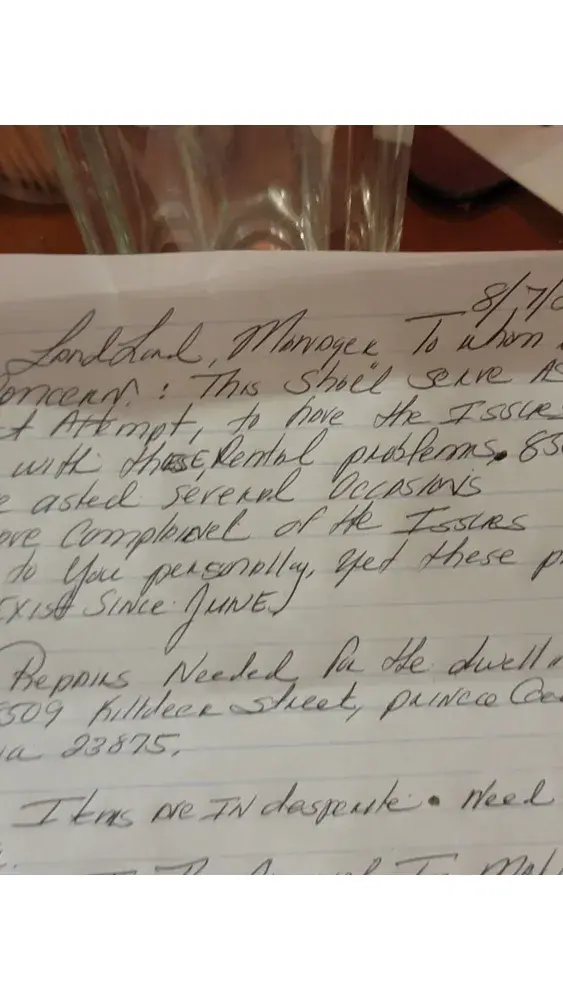 8/7/
LandLord, Manager To whom
oncern: : This shall serve AS
Attempt, to have the Issues
with these Rental problems. 850
asted several Occasions
ove Complained of the Issues
to You personally, yet these p
Exist Since June
Repairs Needed for the dwell
8509 Killdeer Street, prince Geo
ia 23875.
Items are IN desperate. Need